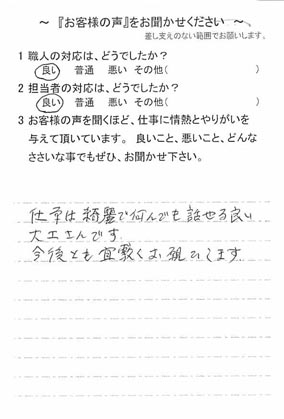 ～ 『お客様の声』をお聞かせください ～
差し支えのない範囲でお願いします。
1 職人の対応は、どうでしたか？
良い 普通 悪い その他( )
2 担当者の対応は、どうでしたか？
良い 普通 悪い その他( )
3 お客様の声を聞くほど、仕事に情熱とやりがいを
与えて頂いています。 良いこと、悪いこと、どんな
ささいな事でもぜひ、お聞かせ下さい。
仕事は綺麗で何んでも話せる良い
大工さんです。
今後とも宜敷くお願いします